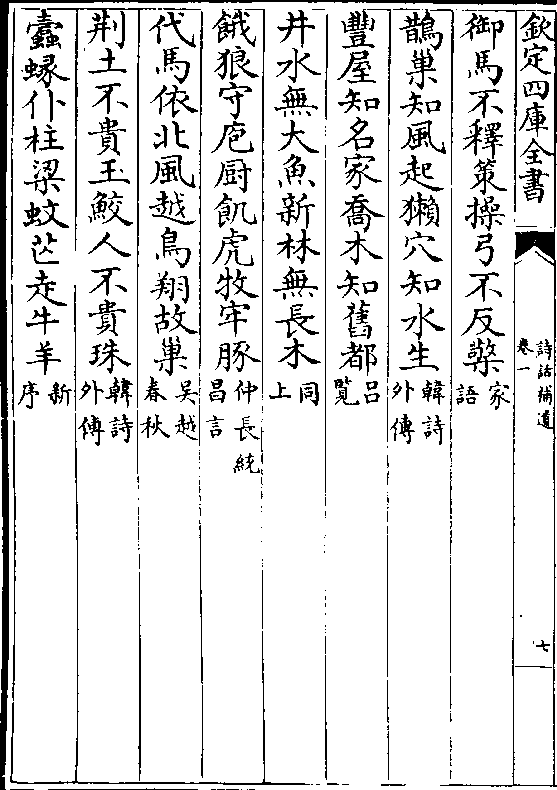 欽定四庫全書
詩話補遺
卷一
七
御馬不釋策操弓不反檠家語
鵲巢知風起獺穴知水生韓詩外傳
豐屋知名家喬木知舊都呂覽
井水無大魚新林無長木同上
餓狼守庖厨飢虎牧牢豚仲長統昌言
代馬依北風越鳥翔故巢吳越春秋
荆土不貴玉鮫人不貴珠韓詩外傳
蠹蝝仆柱梁蚊芒走牛羊新序